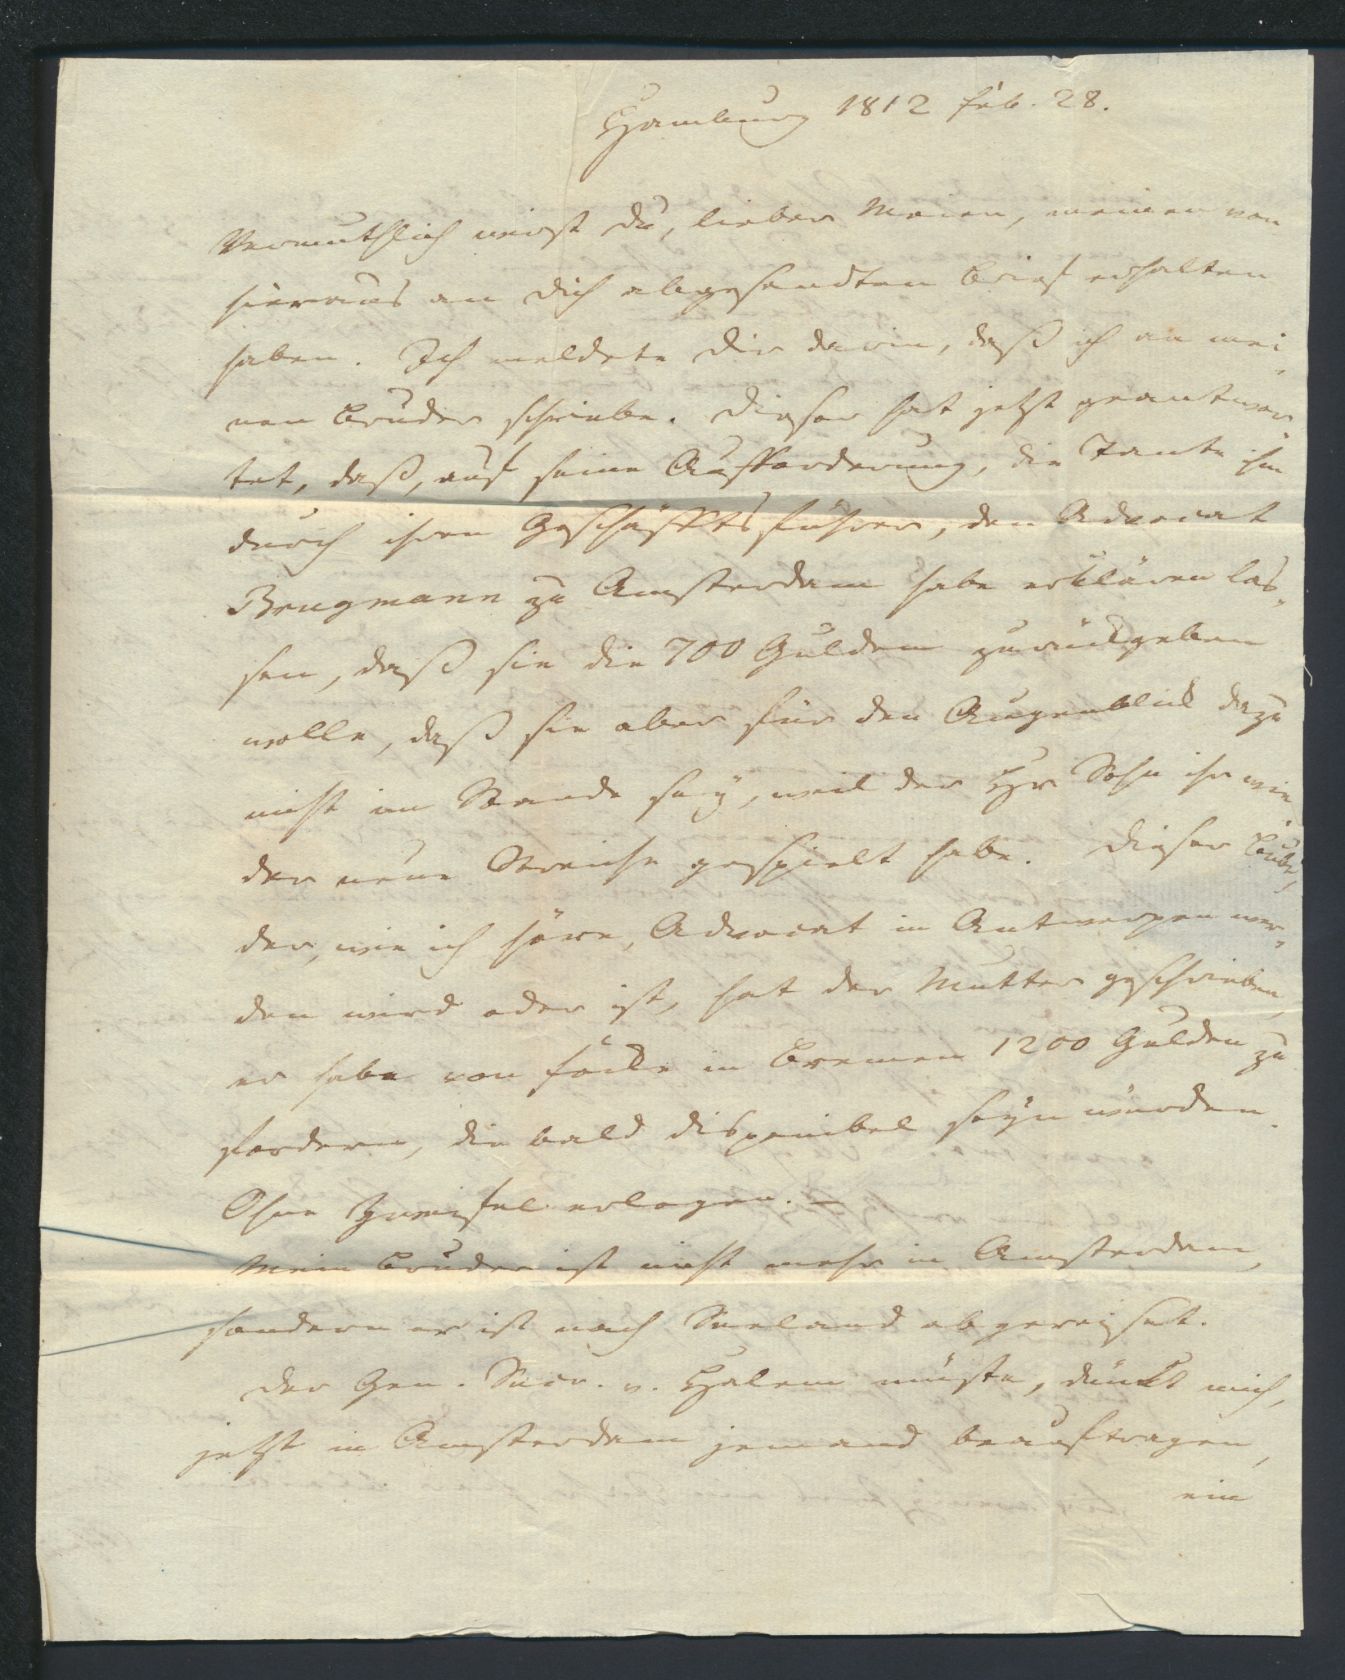 Hamburg 1812 feb. 28.
Vermuthlich wirst du, lieber Meien, meinen von
hieraus an dich abgesandten Brief erhalten
haben. Ich meldete dir darin, daß ich an mei-
nen Bruder schriebe. Dieser hat jetzt geantwor-
tet, daß, auf seine Aufforderung, die Tante ihm
durch ihren Geschäfftsführer, den Advocat
Brugmann zu Amsterdam habe erklären las-
sen, daß sie die 700 Gulden zurückgeben
wolle, daß sie aber für den Augenblick dazu
nicht im Stande sey, weil der Hr Sohn ihr wie-
der neue Streiche gespielt habe. Dieser Bube,
der, wie ich höre, Advocat in Antwerpen wer-
den wird oder ist, hat der Mutter geschrieben,
er habe von in Bremen 1200 Gulden zu
fordern, die bald disponibel seyn würden.
Ohne Zweifel erlogen. —
Mein Bruder ist nicht mehr in Amsterdam,
sondern er ist nach Seeland abgereiset.
Der Gen. Secr. v. Halem müste, dünkt mich,
jetzt in Amsterdam jemand beauftragen,
ein